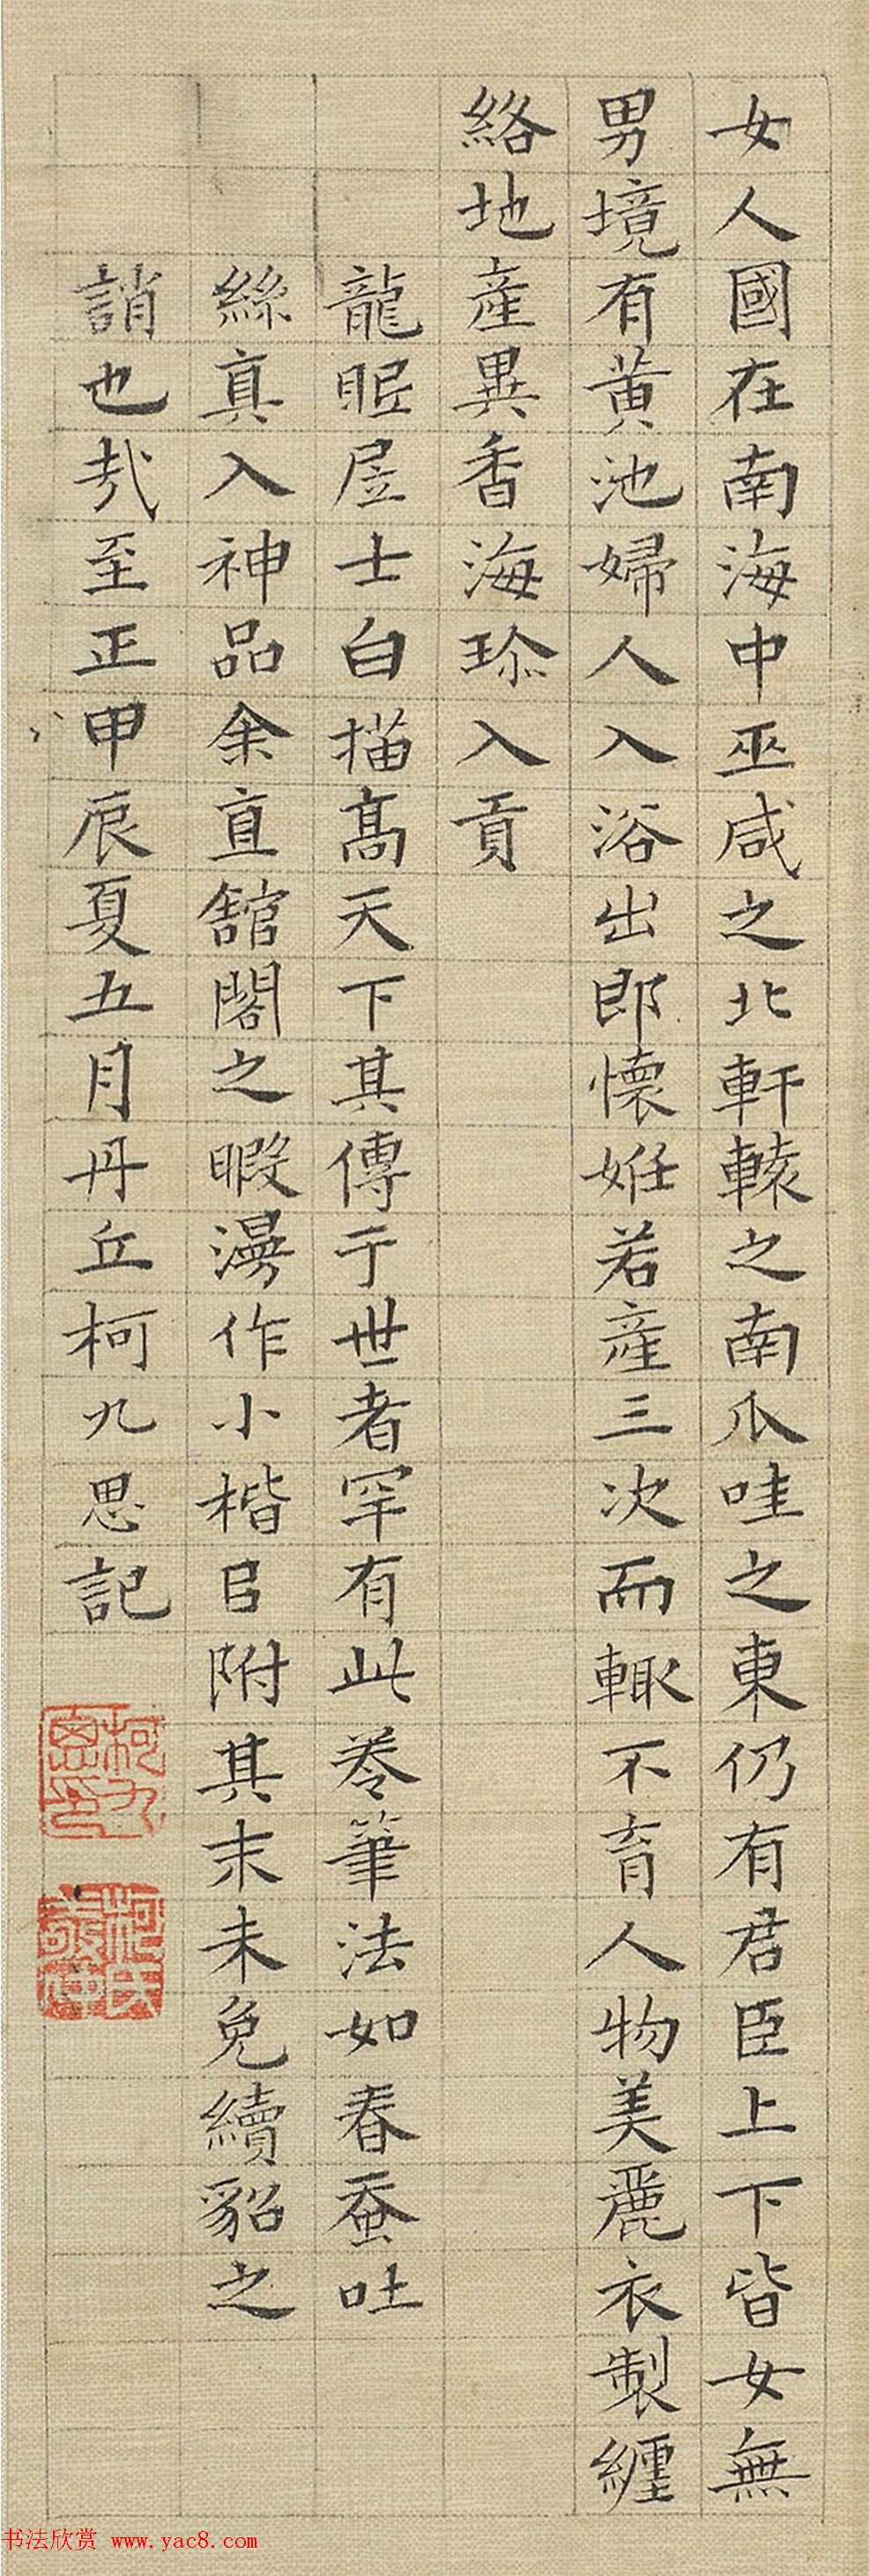 女人國在南海中巫咸之北軒轅之南爪哇之東仍有君臣上下皆女無
男境有黄池婦人入浴出即懷妊若産三次而輙不育人物美麗衣製纏
絡地産異香海珎入貢
龍眠居士白描髙天下其傳于世者罕有此卷筆法如春蚕吐
絲真入神品余直舘閣之暇漫作小楷㠯附其末未免續貂之
誚也㢤至正甲辰夏五月丹丘柯九思記
柯九思印
柯氏敬仲
书法欣赏 www.yac8.com